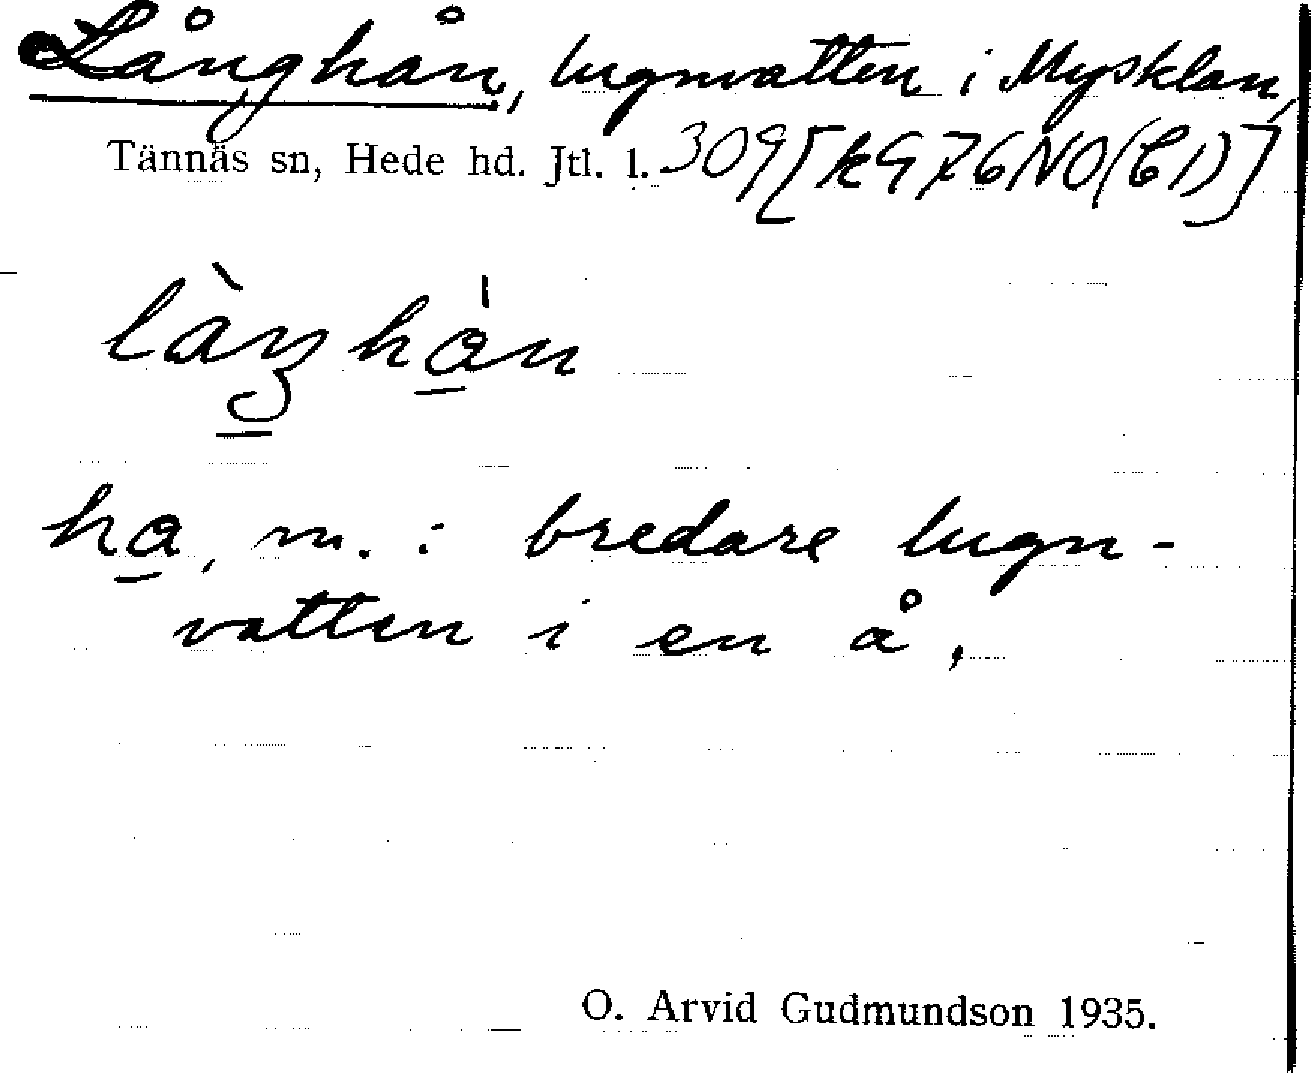 Långhån, lugnvatten i Mysklan,
Tännäs sn, Hede hd. Jtl. l. 309[kG76NO(C1)]
làŋha̠̍n
ha̠, m. : bredare lugn-
vatten i en å.
O. Arvid Gudmundson 1935.